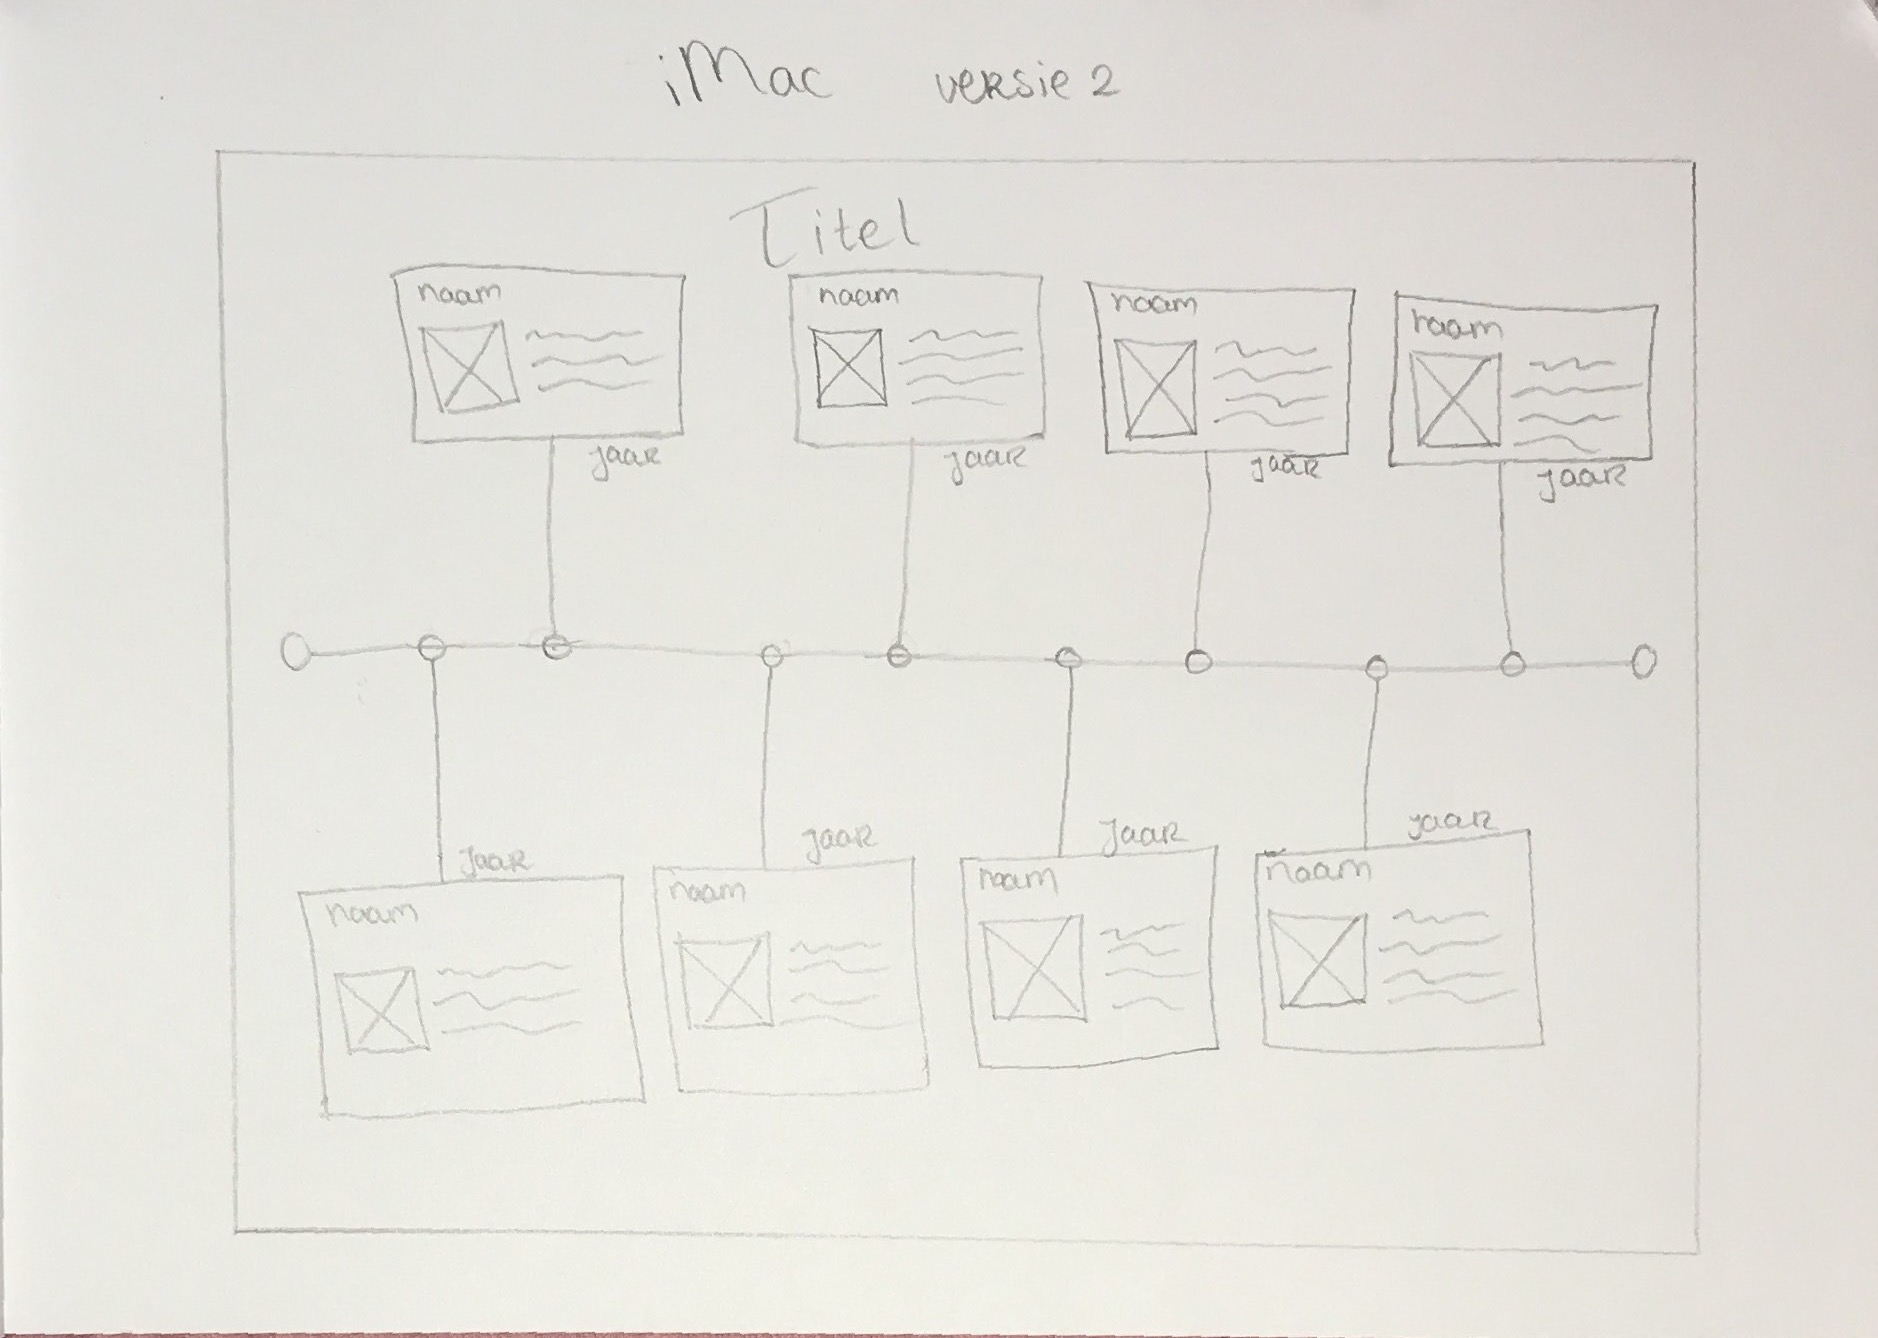 iMac versie 2
Titel
naam
naam
naam
naam
jaar
jaar
jaar
jaar
jaar
jaar
jaar
jaar
naam
naam
naam
naam